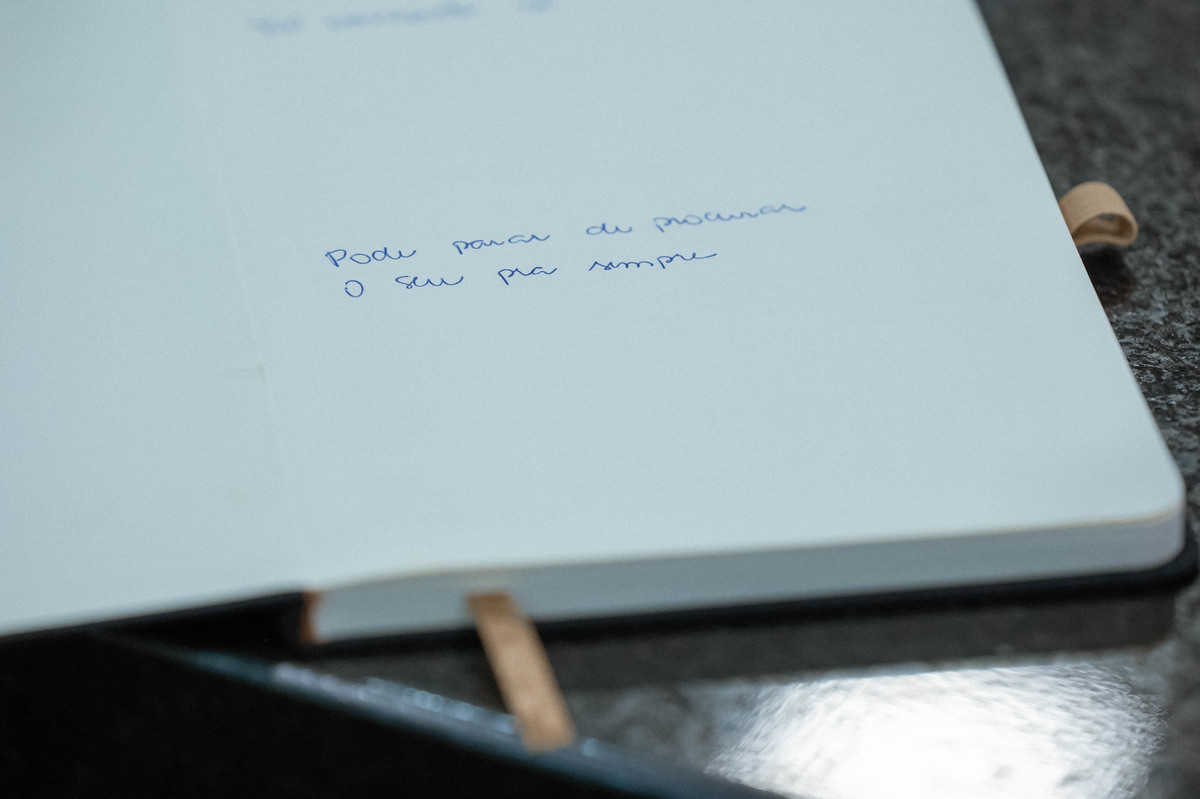 Pode parar de procurar
O seu pra sempre